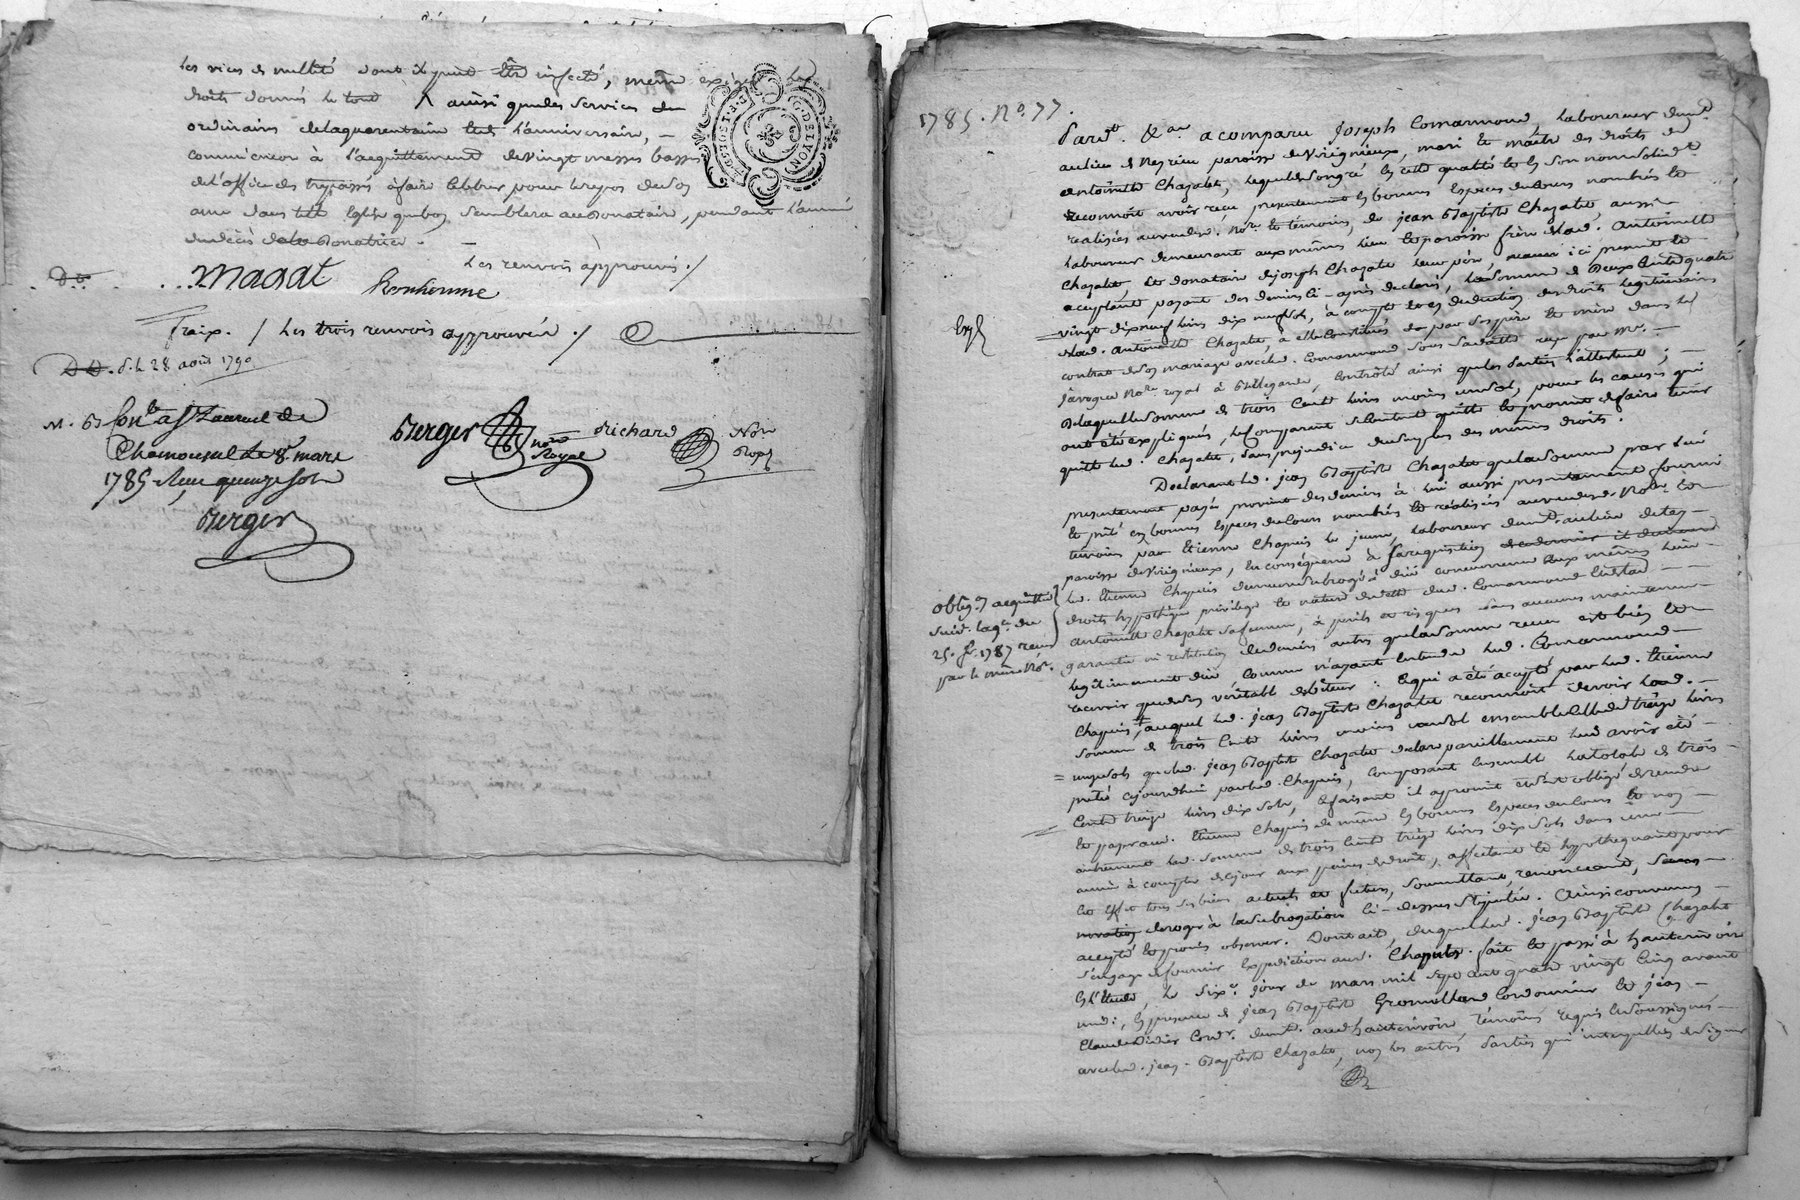 les vices de nullité dont il peut être infecté, même exiger les
droits donnés le tout ainsi que les services
ordinaires de la quarantaine et de l'anniversaire, —
commencer à l'acquittement de vingt messes basses
de l'office des trépassés à faire célébrer pour le repos de son
ame dans telle Eglise que bon semblera au donataire, pendant l'année
du décès de la Donatrice. —
G. DE LYON
Les renvois approuvés ./
magat bonhomme
fraix. / Les trois renvois approuvés ./
D. D. d. le 28 août 1790
M. B Con.lé à St Laurent de
Chamousset le 8.e mars
1785 Reçu quinze sols
Berger
Berger no.re Royal
Richard No.re Royal
1785. N.o 77.
Pard.t &a.a a comparu Joseph Comarmond, laboureur dem.t
au lieu de Neyrieu paroisse de Virigneux, mari et maitre des droits de
antoinette Chazalet, lequel de son gré en cette qualité et en son nom solid.t
reconnoit avoir reçu presentement en bonnes Especes du cours nombrées et
realisées au vu desd. No.res et témoins, de jean Baptiste Chazalet, aussi
laboureur demeurant aux mêmes lieu et paroisse frère de lad. Antoinette
Chazalet, et donataire de joseph Chazalet leur père, ici present et
acceptant payant des deniers ci-après déclarés, la somme de Deux Cent quatre
vingt dix neuf livres dix neuf sols, à compte et en deduction des droits legitimaires
de lad. antoinette Chazalet, à elle Constitués par ses père et mère dans le
contrat de son mariage avec led. Comarmond sous sa datte reçu par M.e —
javogue No.re royal à Bellegarde, Contrôlé ainsi que les parties l'attestent; —
De laquelle somme de trois Cents livres moins un sol, pour les causes qui
ont été expliquées, le Comparant se contente quitte et promet de faire tenir
quitte led. Chazalet, sans prejudice du surplus des mêmes droits.
Declarant led. jean Baptiste Chazalet que la somme par lui
presentement payée provient des deniers à lui aussi presentement fourni
et prêté en bonnes Especes du cours nombrées et réalisées au vu desd. No.res et
témoins par Etienne Chapuis le jeune, laboureur dem.t au lieu de
paroisse de Virigneux, En conséquence à sa requisition
led. Etienne Chapuis demeure subrogé à due concurrence aux mêmes lieu
droits hypothèque privilege et nature de dette dud. Comarmond et de lad. —
antoinette Chazalet sa femme, à perils et risques sans aucune maintenue
garantie ni restitution de deniers autres que la somme reçue est bien et
legitimement due, Comme n'ayant Entendu led. Comarmond —
recevoir que de son véritable debiteur: Ce qui a été accepté par led. Etienne
Chapuis, auquel led. jean Baptiste Chazalet reconnoit devoir lad. —
Somme de trois Cents livres moins un sol ensemble Celle de treize livres
onze sols que led. jean Baptiste Chazalet declare pareillement lui avoir été —
prêtée cejourdhui par led. Chapuis, composant Ensemble la totale de trois
Cents treize livres dix sols, Ce faisant il a promis et s'est obligé de rendre
et payer aud. Etienne Chapuis de même en bonnes Especes du cours et non —
autrement lad. somme de trois Cents treize livres dix sols dans une —
année à compter de ce jour aux peines de droit, affectant et hypothequant pour
cet effet tous ses biens actuels et futurs, soumettant, renonceant, sans —
novation deroger à la subrogation ci-dessus stipulée. Ainsi convenu —
accepté et promis observer. Dont acte, duquel led. jean Baptiste Chazalet
s'engage de fournir Expedition aud. Chapuis. fait et passé à hauterivoire
En l'Etude, le six.e jour de mars mil sept cent quatre vingt Cinq avant
midi, En presence de jean Baptiste Gromolland Cordonnier et jean —
Claude Didier Cord.r dem.t aud. hauterivoire, témoins requis Et soussignés —
avec led. jean-Baptiste Chazalet, non les autres parties qui interpellées de signer
Exp.é
oblig.on acquittée
suiv.t la q.ce du
25. f.r 1787 reçue
par le même No.re